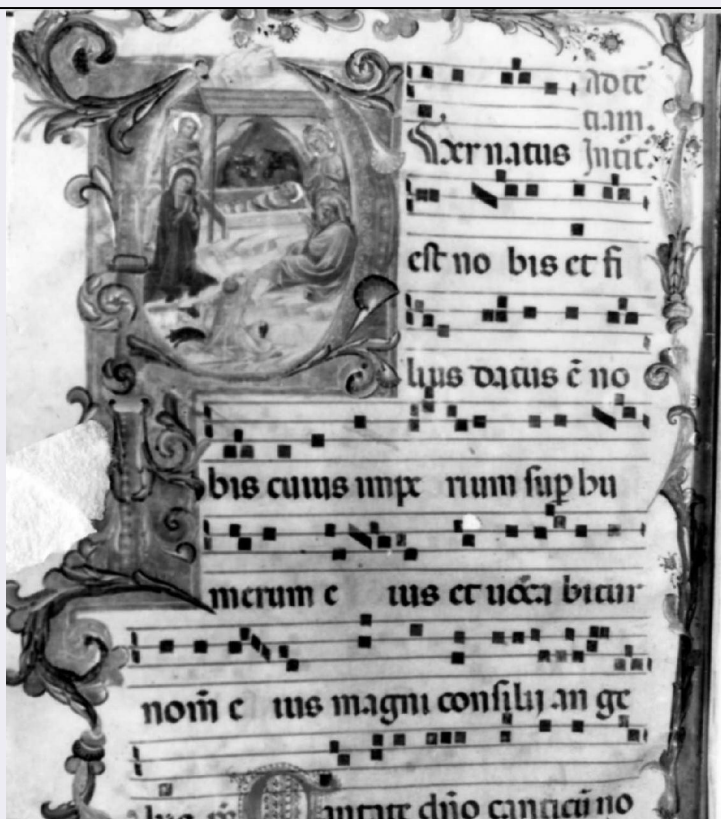 ad tc̄
tiam.
Uer natus Introit.
est no bis et fi
lius datus ē no
bis cuius impe rium sup hu
merum e ius et uoca bitur
nom̄ e ius magni consilij an ge
antate dn̄o canticū no